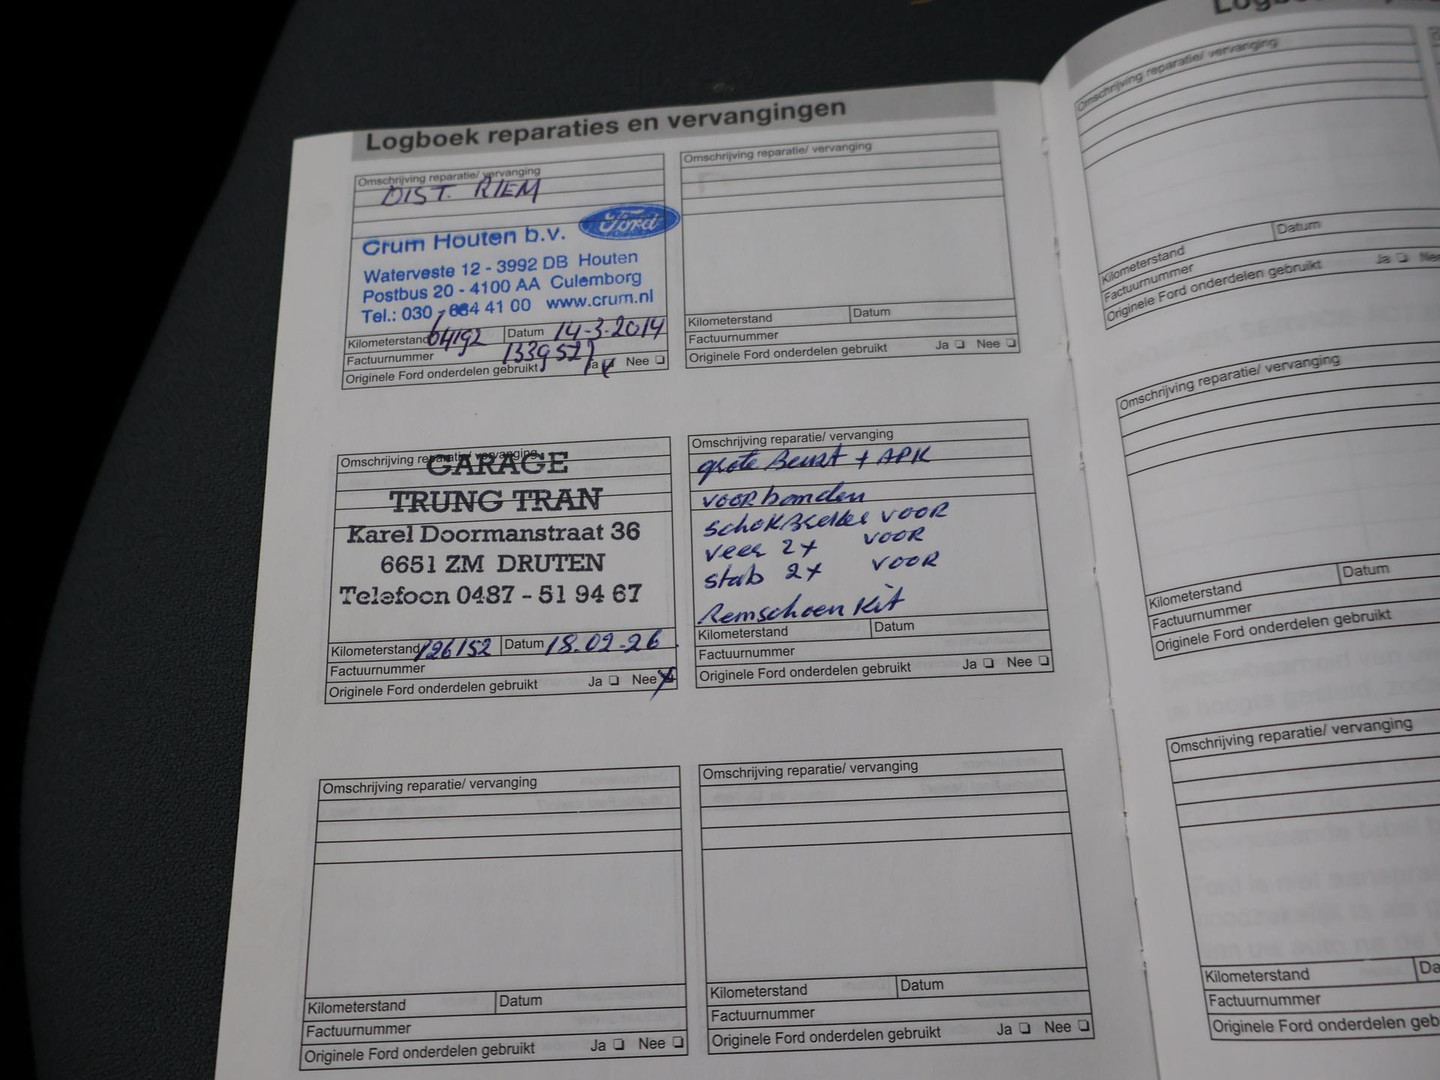 Logboek reparaties en vervangingen
Omschrijving reparatie/ vervanging
DIST. RIEM
Ford
Crum Houten b.v.
Waterveste 12 - 3992 DB Houten
Postbus 20 - 4100 AA Culemborg
Tel.: 030 - 634 41 00 www.crum.nl
Kilometerstand 64192 Datum 14-3-2014
Factuurnummer 1339527
Originele Ford onderdelen gebruikt Ja Nee
Omschrijving reparatie/ vervanging
Kilometerstand Datum
Factuurnummer
Originele Ford onderdelen gebruikt Ja Nee
Omschrijving reparatie/ vervanging
GARAGE
TRUNG TRAN
Karel Doormanstraat 36
6651 ZM DRUTEN
Telefoon 0487 - 51 94 67
Kilometerstand 126152 Datum 18.02-26
Factuurnummer
Originele Ford onderdelen gebruikt Ja Nee
Omschrijving reparatie/ vervanging
grote Beurt + APK
voorbanden
schokbreker VOOR
veer 2x VOOR
stab 2x VOOR
Remschoen Kit
Kilometerstand Datum
Factuurnummer
Originele Ford onderdelen gebruikt Ja Nee
Omschrijving reparatie/ vervanging
Kilometerstand Datum
Factuurnummer
Originele Ford onderdelen gebruikt Ja Nee
Omschrijving reparatie/ vervanging
Kilometerstand Datum
Factuurnummer
Originele Ford onderdelen gebruikt Ja Nee
Omschrijving reparatie/ vervanging
Kilometerstand Datum
Factuurnummer
Originele Ford onderdelen gebruikt Ja Nee
Omschrijving reparatie/ vervanging
Kilometerstand Datum
Factuurnummer
Originele Ford onderdelen gebruikt
Omschrijving reparatie/ vervanging
Kilometerstand
Factuurnummer
Originele Ford onderdelen